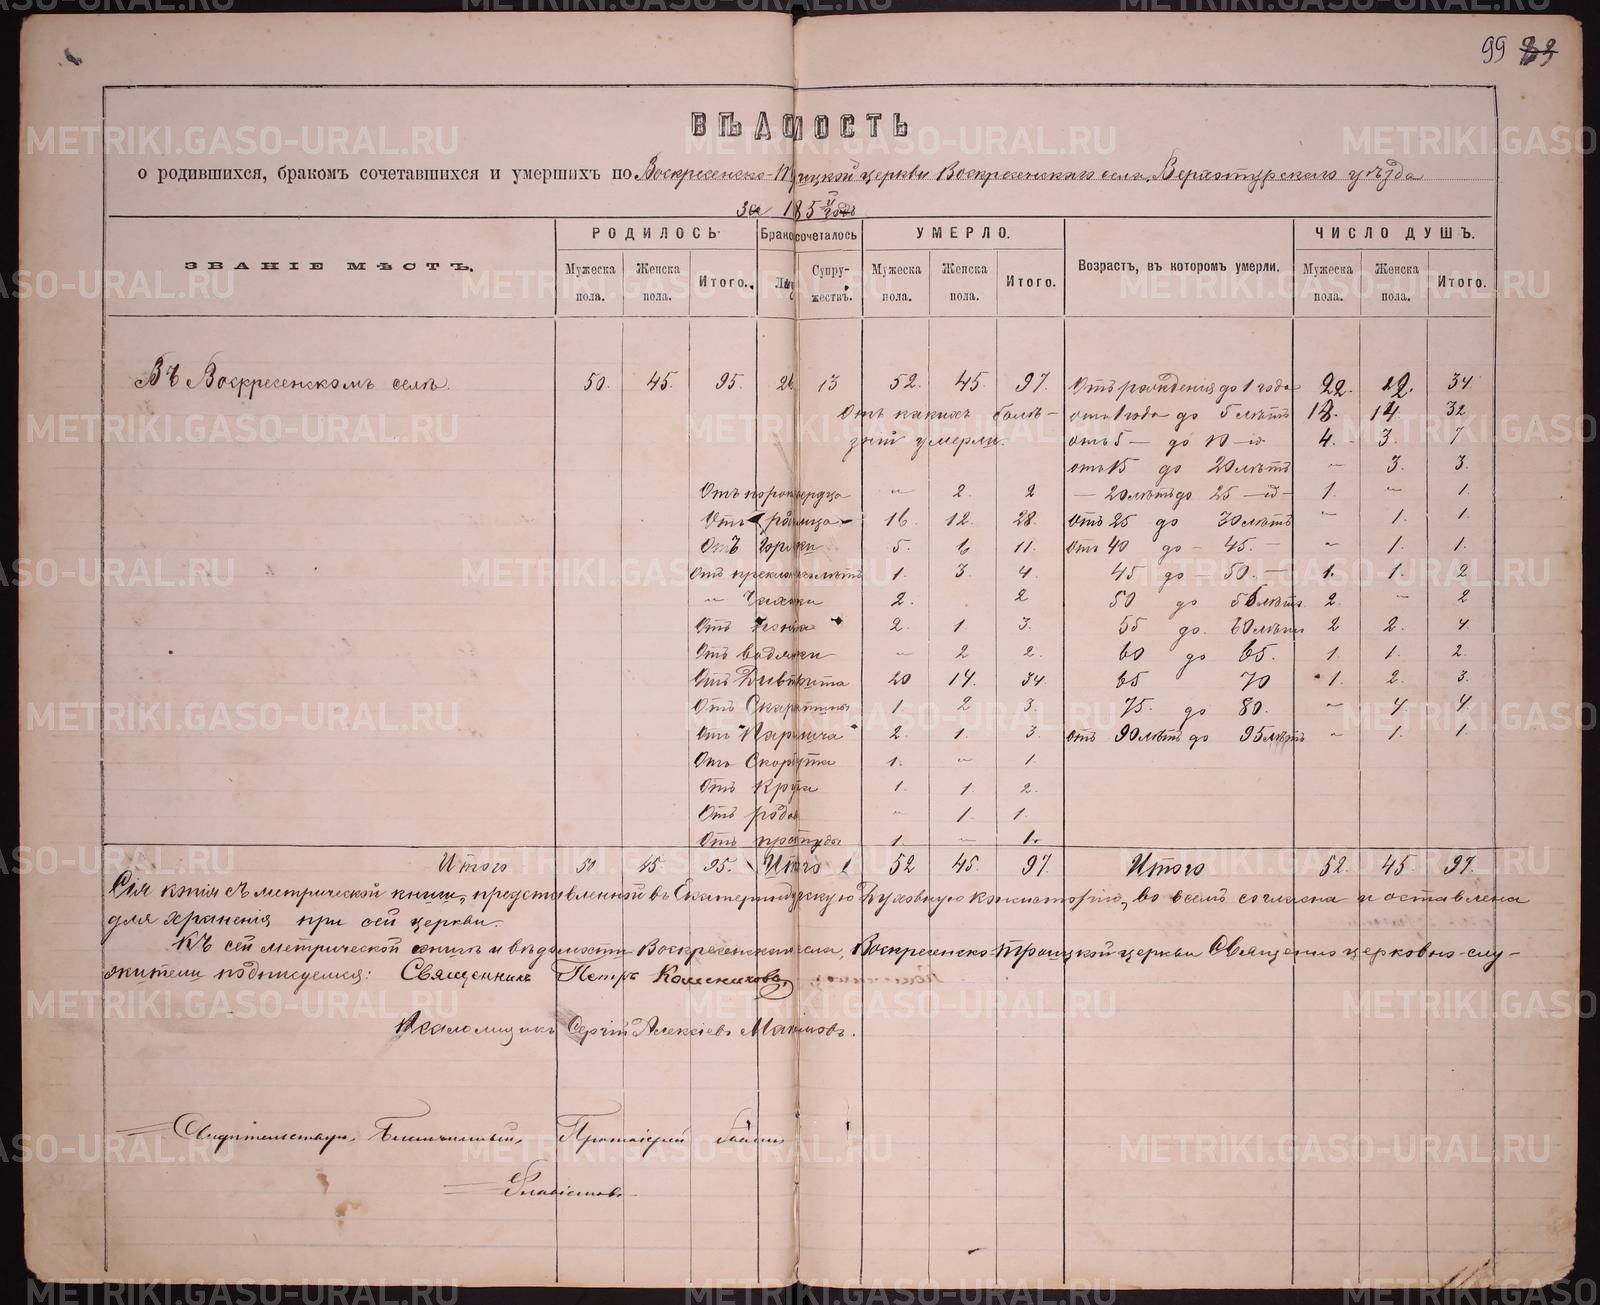 99
ВѢДОМОСТЬ
о родившихся, бракомъ сочетавшихся и умершихъ по Воскресенско-Троицкой церкви Воскресенскаго села, Верхотурскаго уѣзда
за
ЗВАНІЕ МѢСТЪ. РОДИЛОСЬ. Бракосочеталось УМЕРЛО. Возрастъ, въ котором умерли. ЧИСЛО ДУШЪ.
Мужеска пола. Женска пола. Итого. Лицъ Супружествъ. Мужеска пола. Женска пола. Итого. Мужеска пола. Женска пола. Итого.
Въ Воскресенскомъ селѣ. 50. 45. 95. 26 13 52. 45. 97. Отъ рожденія до 1 года 22. 12. 34.
Отъ какихъ болѣ- отъ 1 года до 5 лѣтъ 18. 14. 32
зней умерли. отъ 5 — до 10 4. 3. 7
отъ 15 до 20 лѣтъ — 3. 3.
Отъ — 2. 2 — 20 лѣтъ до 25 1. — 1.
Отъ 16. 12. 28. Отъ 25 до 30 лѣтъ — 1. 1.
Отъ 5. 6 11. Отъ 40 до — 45. — — 1. 1.
Отъ 1. 3. 4. 45 до — 50. — 1. 1. 2
2. 2 50 до 55 лѣтъ 2. — 2
Отъ 2. 1. 3. 55 до 60 лѣтъ 2 2. 4.
Отъ водянки — 2 2. 60 до 65. 1. 1. 2.
Отъ Дифтерита 20 14. 34. 65 70 1. 2. 3.
Отъ Скарлатины 1 2 3. 75. до 80. — 4. 4.
Отъ Паралича 2. 1. 3. отъ 90 лѣтъ до 95 лѣтъ — 1. 1.
Отъ 1. — 1.
Отъ Крупа 1. 1. 2.
Отъ родовъ — 1. 1.
Отъ простуды 1. — 1.
Итого 50 45 95. Итого 52 45. 97. Итого 52. 45. 97.
Сія копія съ метрической книги, представленной въ Екатеринбургскую Духовную Консисторію, во всемъ согласна и оставлена
для храненія при сей церкви.
Къ сей метрической книгѣ и вѣдомости Воскресенскаго села, Воскресенско-Троицкой церкви Священно церковно-слу-
жители подписуемся: Священникъ Петръ
Псаломщикъ Сергій Алексѣевъ
Протоіерей
METRIKI.GASO-URAL.RU